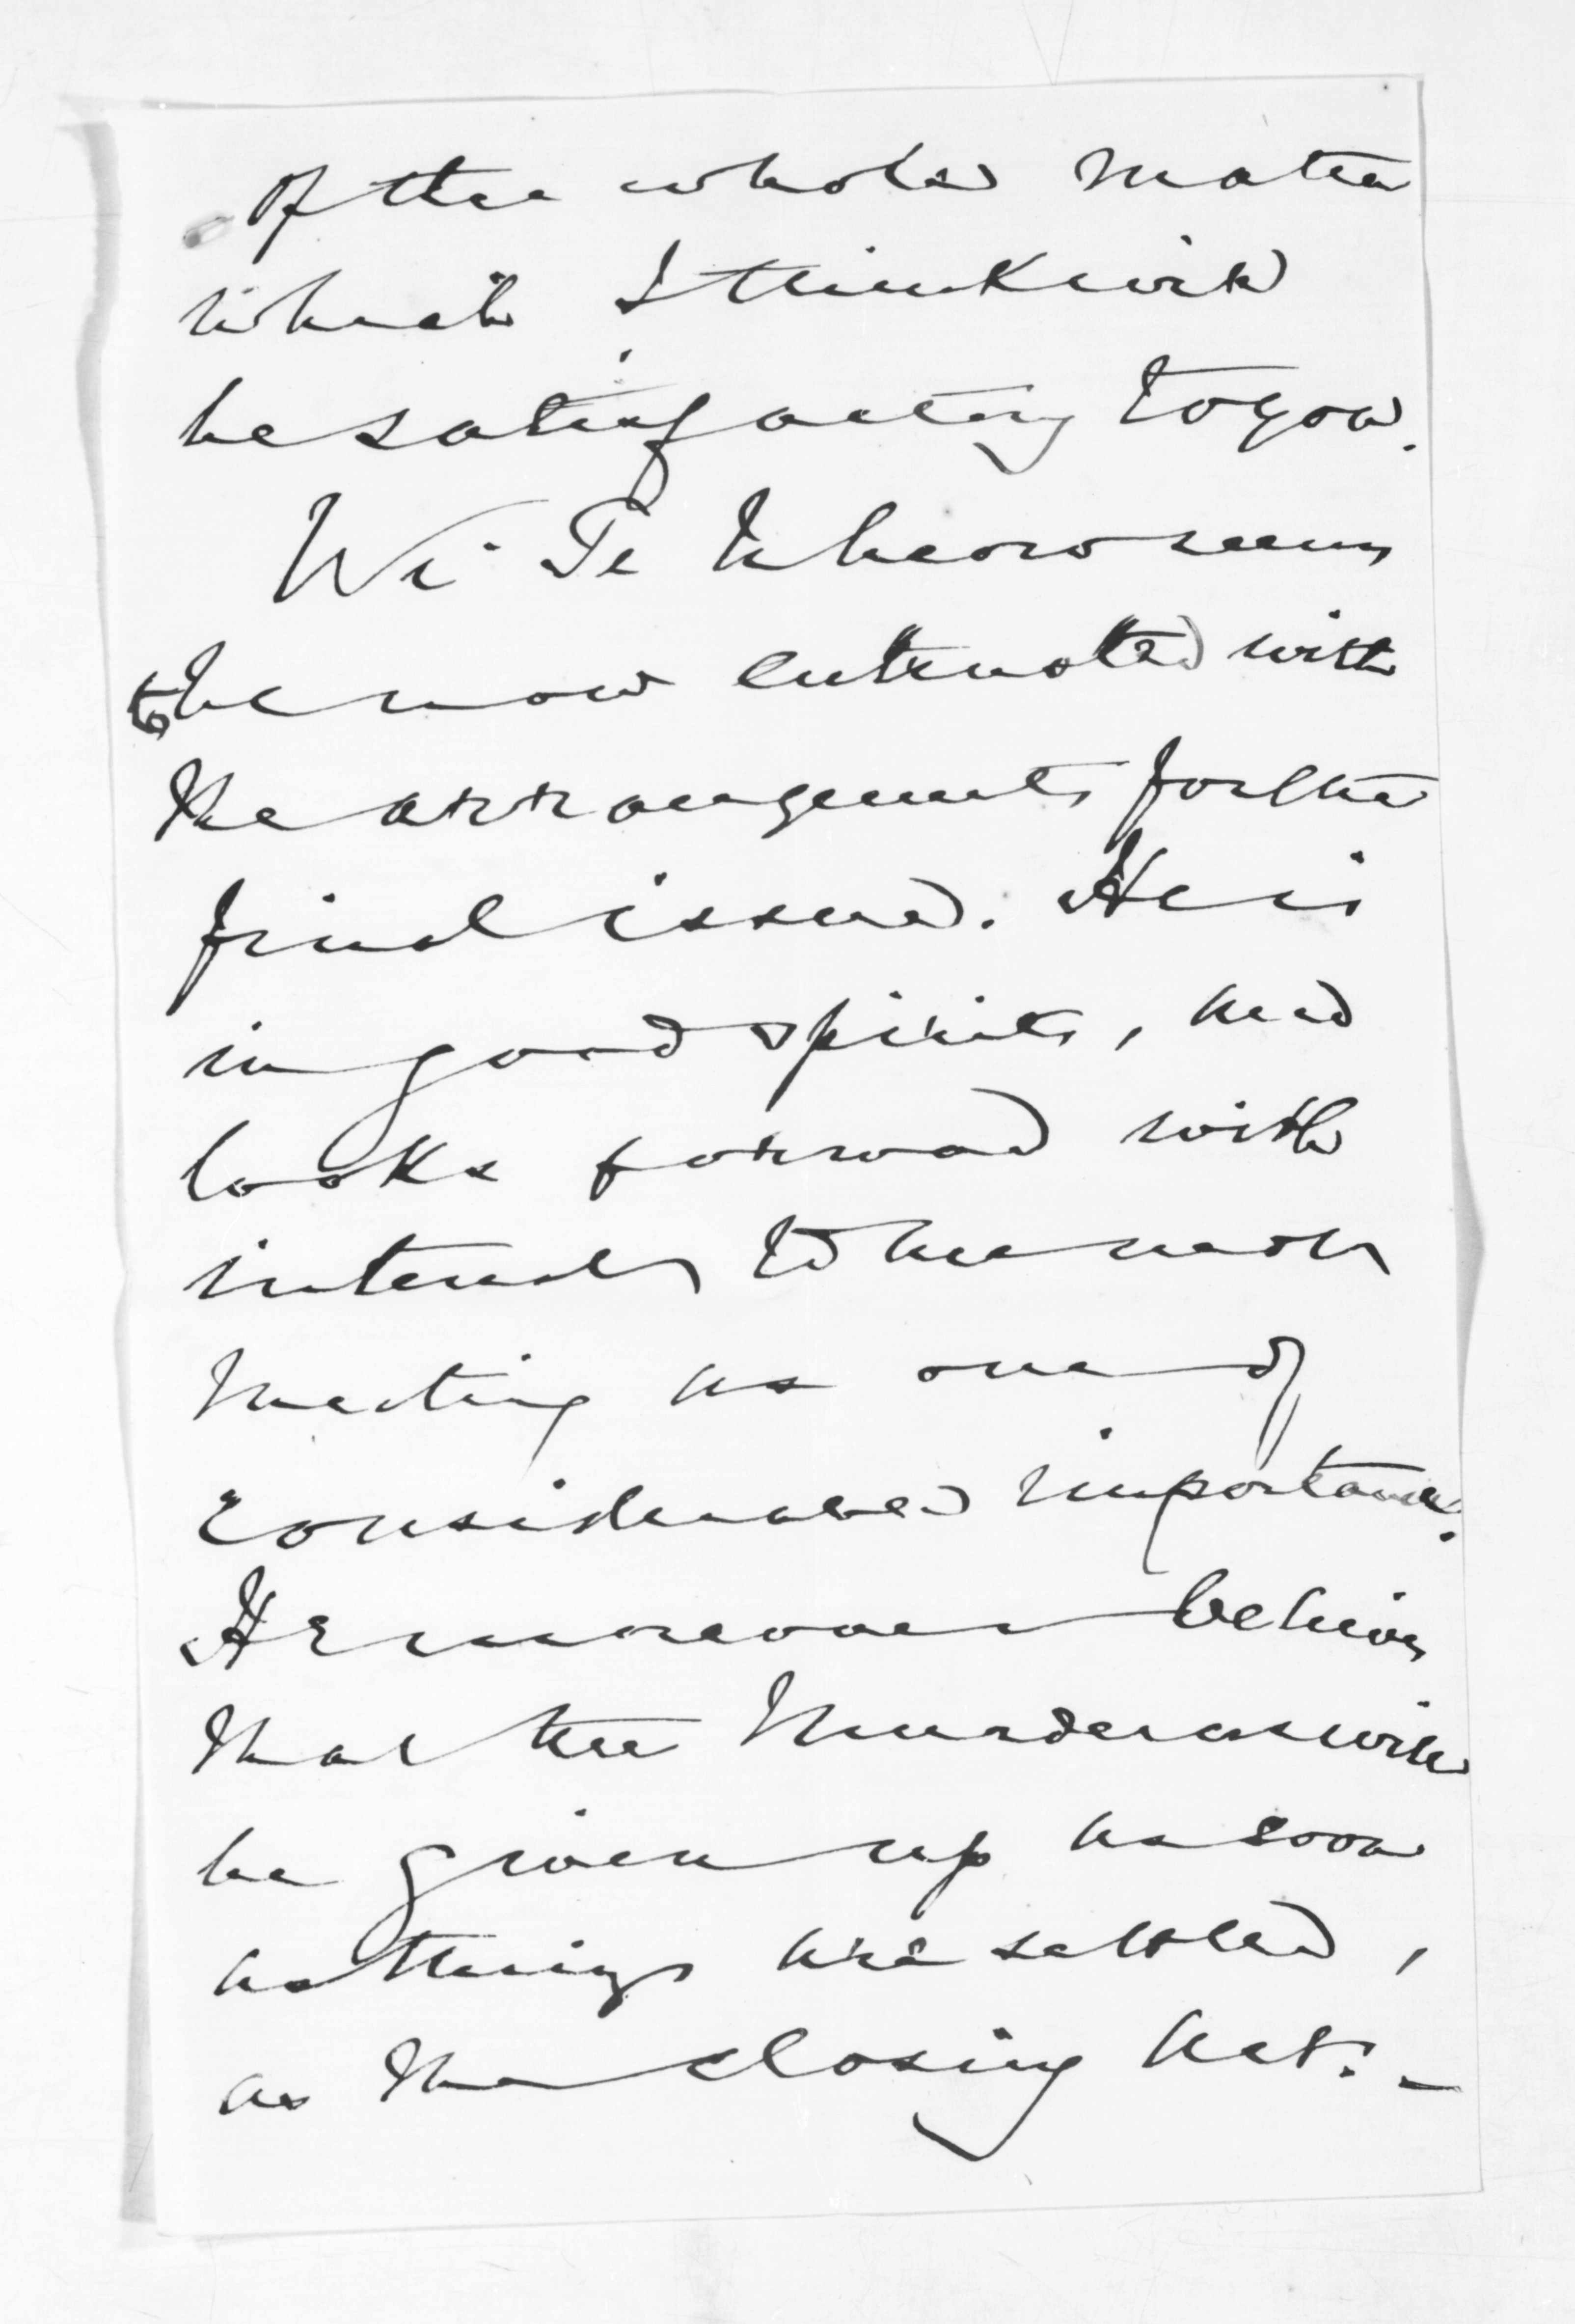 of the whole matter
which I think will
be satisfactory to you.
Wi Te Wheoro seems
to be now entrusted with
the arrangements for the
final issue. He is
in good spirits, and
looks forward with
interest to the next
meeting as one of
considerable importance.
He moreover believes
that the Murderers will
be given up as soon
as things are settled,
as the closing act. _